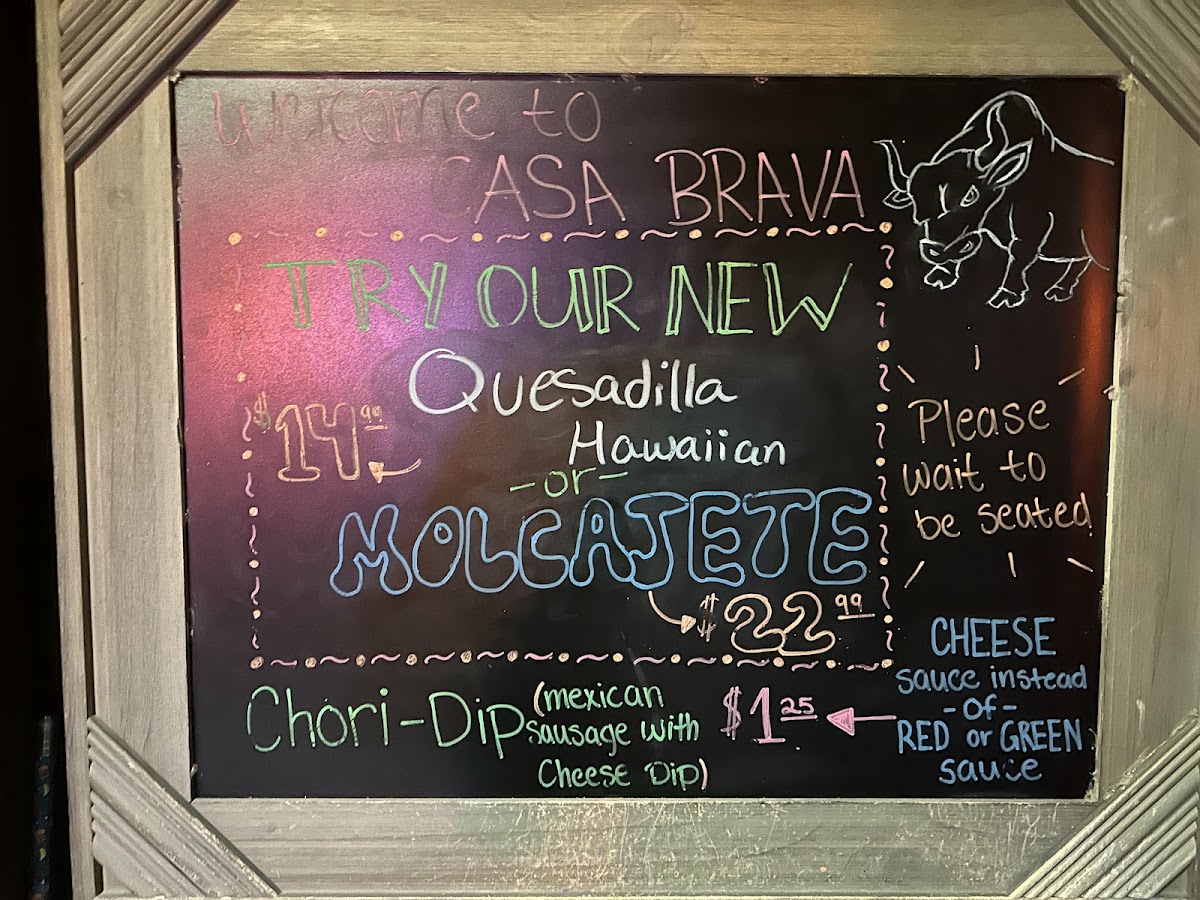 welcome to
CASA BRAVA
TRY OUR NEW
Quesadilla
Hawaiian
$14.99
-or-
MOLCAJETE
$22 99
Please
wait to
be seated
Chori-Dip
(mexican
sausage with
Cheese Dip)
$1 25
CHEESE
sauce instead
-of-
RED or GREEN
sauce